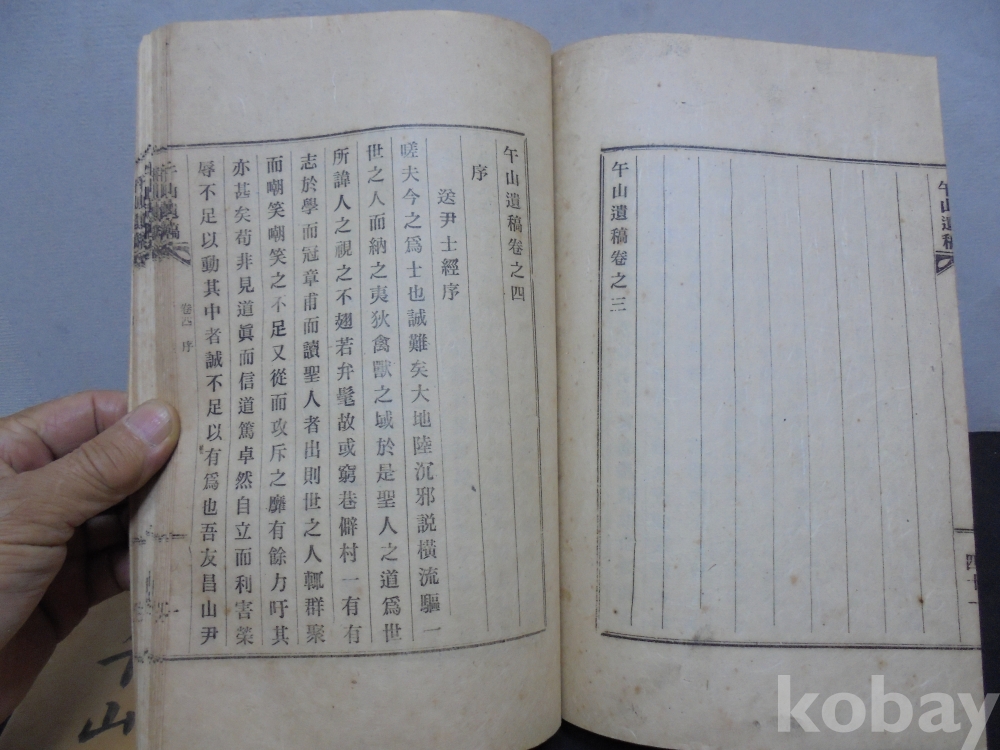 午山遺稿
午山遺稿卷之三
午山遺稿卷之四
序
送尹士經序
嗟夫今之爲士也誠難矣大地陸沉邪說橫流驅一
世之人而納之夷狄禽獸之域於是聖人之道爲世
所諱人之視之不翅若弁髦故或窮巷僻村一有有
志於學而冠章甫而讀聖人者出則世之人輒群聚
而嘲笑嘲笑之不足又從而攻斥之靡有餘力吁其
亦甚矣苟非見道眞而信道篤卓然自立而利害榮
辱不足以動其中者誠不足以有爲也吾友昌山尹
午山遺稿
卷四 序
山
kobay